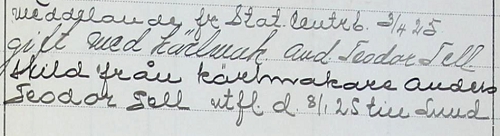 meddelande fr Stat. Centrb. 3/4 25
gift med kärlmak. And. Teodor Sell
skild från kärlmakare Anders
Teodor Sell utfl. d. 8/1 25 till Lund